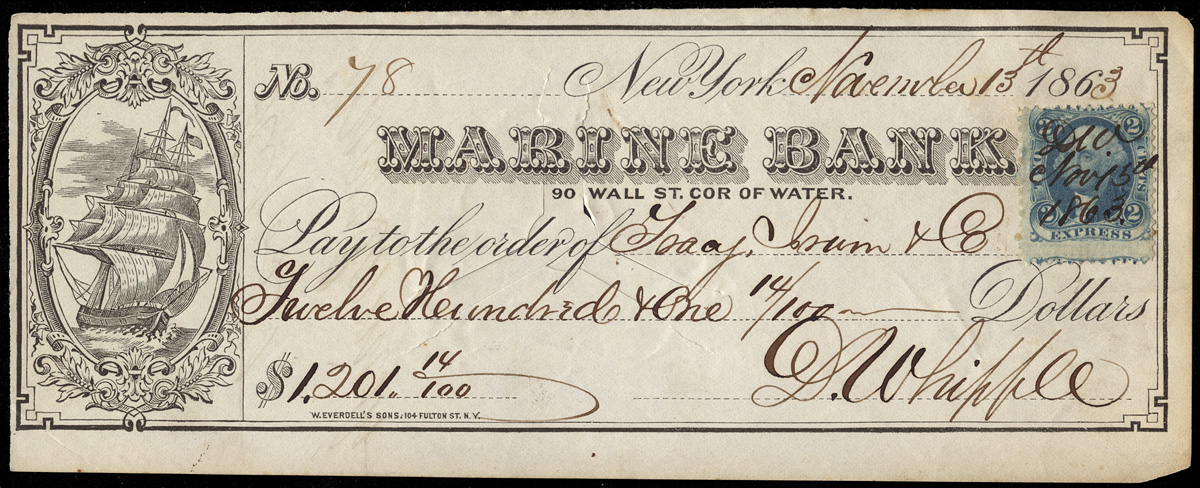 No. 78 New York November 13th 1863
MARINE BANK
90 WALL ST. COR OF WATER.
Pay to the order of Tracy, Irwin & Co
Twelve Hundred & One 14/100 Dollars
$1,201.. 14/100 D. Whipple
W. EVERDELL'S SONS. 104 FULTON ST. N.Y.
2 2
D.W.
Nov 13th
1863
2 2
EXPRESS